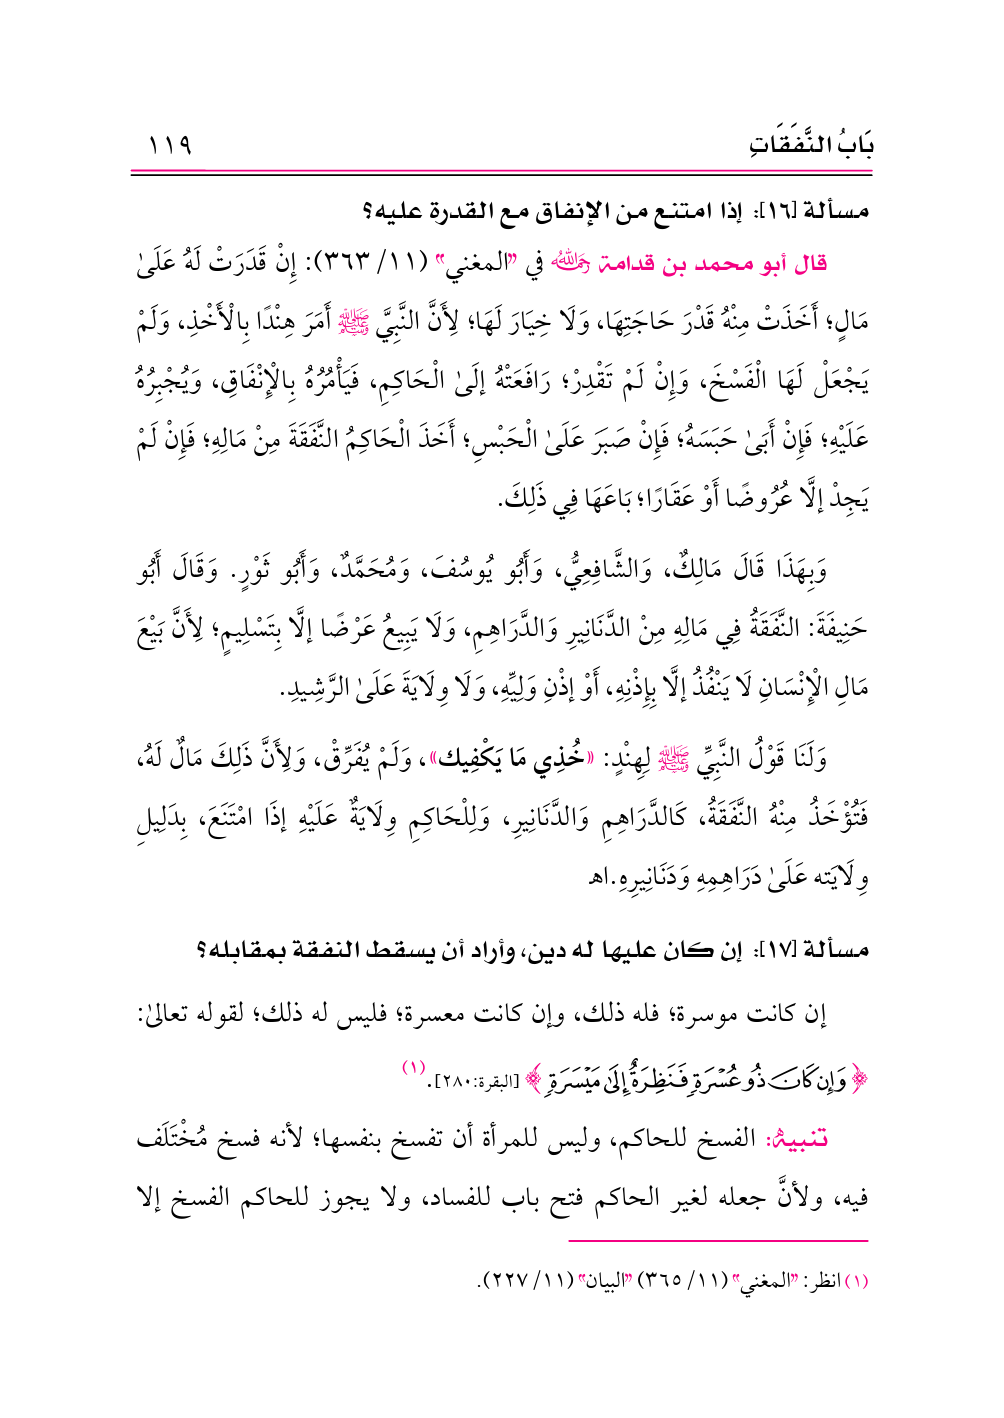 بَابُ النَّفَقَاتِ ١١٩
مسألة [١٦]: إذا امتنع من الإنفاق مع القدرة عليه؟
قال أبو محمد بن قدامة رحمه الله في "المغني" (١١/ ٣٦٣): إِنْ قَدَرَتْ لَهُ عَلَىٰ
مَالٍ؛ أَخَذَتْ مِنْهُ قَدْرَ حَاجَتِهَا، وَلَا خِيَارَ لَهَا؛ لِأَنَّ النَّبِيَّ ﷺ أَمَرَ هِنْدًا بِالْأَخْذِ، وَلَمْ
يَجْعَلْ لَهَا الْفَسْخَ، وَإِنْ لَمْ تَقْدِرْ؛ رَافَعَتْهُ إلَىٰ الْحَاكِمِ، فَيَأْمُرُهُ بِالْإِنْفَاقِ، وَيُجْبِرُهُ
عَلَيْهِ؛ فَإِنْ أَبَىٰ حَبَسَهُ؛ فَإِنْ صَبَرَ عَلَىٰ الْحَبْسِ؛ أَخَذَ الْحَاكِمُ النَّفَقَةَ مِنْ مَالِهِ؛ فَإِنْ لَمْ
يَجِدْ إلَّا عُرُوضًا أَوْ عَقَارًا؛ بَاعَهَا فِي ذَلِكَ.
وَبِهَذَا قَالَ مَالِكٌ، وَالشَّافِعِيُّ، وَأَبُو يُوسُفَ، وَمُحَمَّدٌ، وَأَبُو ثَوْرٍ. وَقَالَ أَبُو
حَنِيفَةَ: النَّفَقَةُ فِي مَالِهِ مِنْ الدَّنَانِيرِ وَالدَّرَاهِمِ، وَلَا يَبِيعُ عَرْضًا إلَّا بِتَسْلِيمٍ؛ لِأَنَّ بَيْعَ
مَالِ الْإِنْسَانِ لَا يَنْفُذُ إلَّا بِإِذْنِهِ، أَوْ إذْنِ وَلِيِّهِ، وَلَا وِلَايَةَ عَلَىٰ الرَّشِيدِ.
وَلَنَا قَوْلُ النَّبِيِّ ﷺ لِهِنْدٍ: «خُذِي مَا يَكْفِيك»، وَلَمْ يُفَرِّقْ، وَلِأَنَّ ذَلِكَ مَالٌ لَهُ،
فَتُؤْخَذُ مِنْهُ النَّفَقَةُ، كَالدَّرَاهِمِ وَالدَّنَانِيرِ، وَلِلْحَاكِمِ وِلَايَةٌ عَلَيْهِ إذَا امْتَنَعَ، بِدَلِيلِ
وِلَايَته عَلَىٰ دَرَاهِمِهِ وَدَنَانِيرِهِ.اهـ
مسألة [١٧]: إن كان عليها له دين، وأراد أن يسقط النفقة بمقابله؟
إن كانت موسرة؛ فله ذلك، وإن كانت معسرة؛ فليس له ذلك؛ لقوله تعالىٰ:
﴿وَإِن كَانَ ذُو عُسْرَةٍ فَنَظِرَةٌ إِلَىٰ مَيْسَرَةٍ﴾ [البقرة:٢٨٠].(١)
تنبيهٌ: الفسخ للحاكم، وليس للمرأة أن تفسخ بنفسها؛ لأنه فسخ مُخْتَلَف
فيه، ولأنَّ جعله لغير الحاكم فتح باب للفساد، ولا يجوز للحاكم الفسخ إلا
(١) انظر: "المغني" (١١/ ٣٦٥) "البيان" (١١/ ٢٢٧).